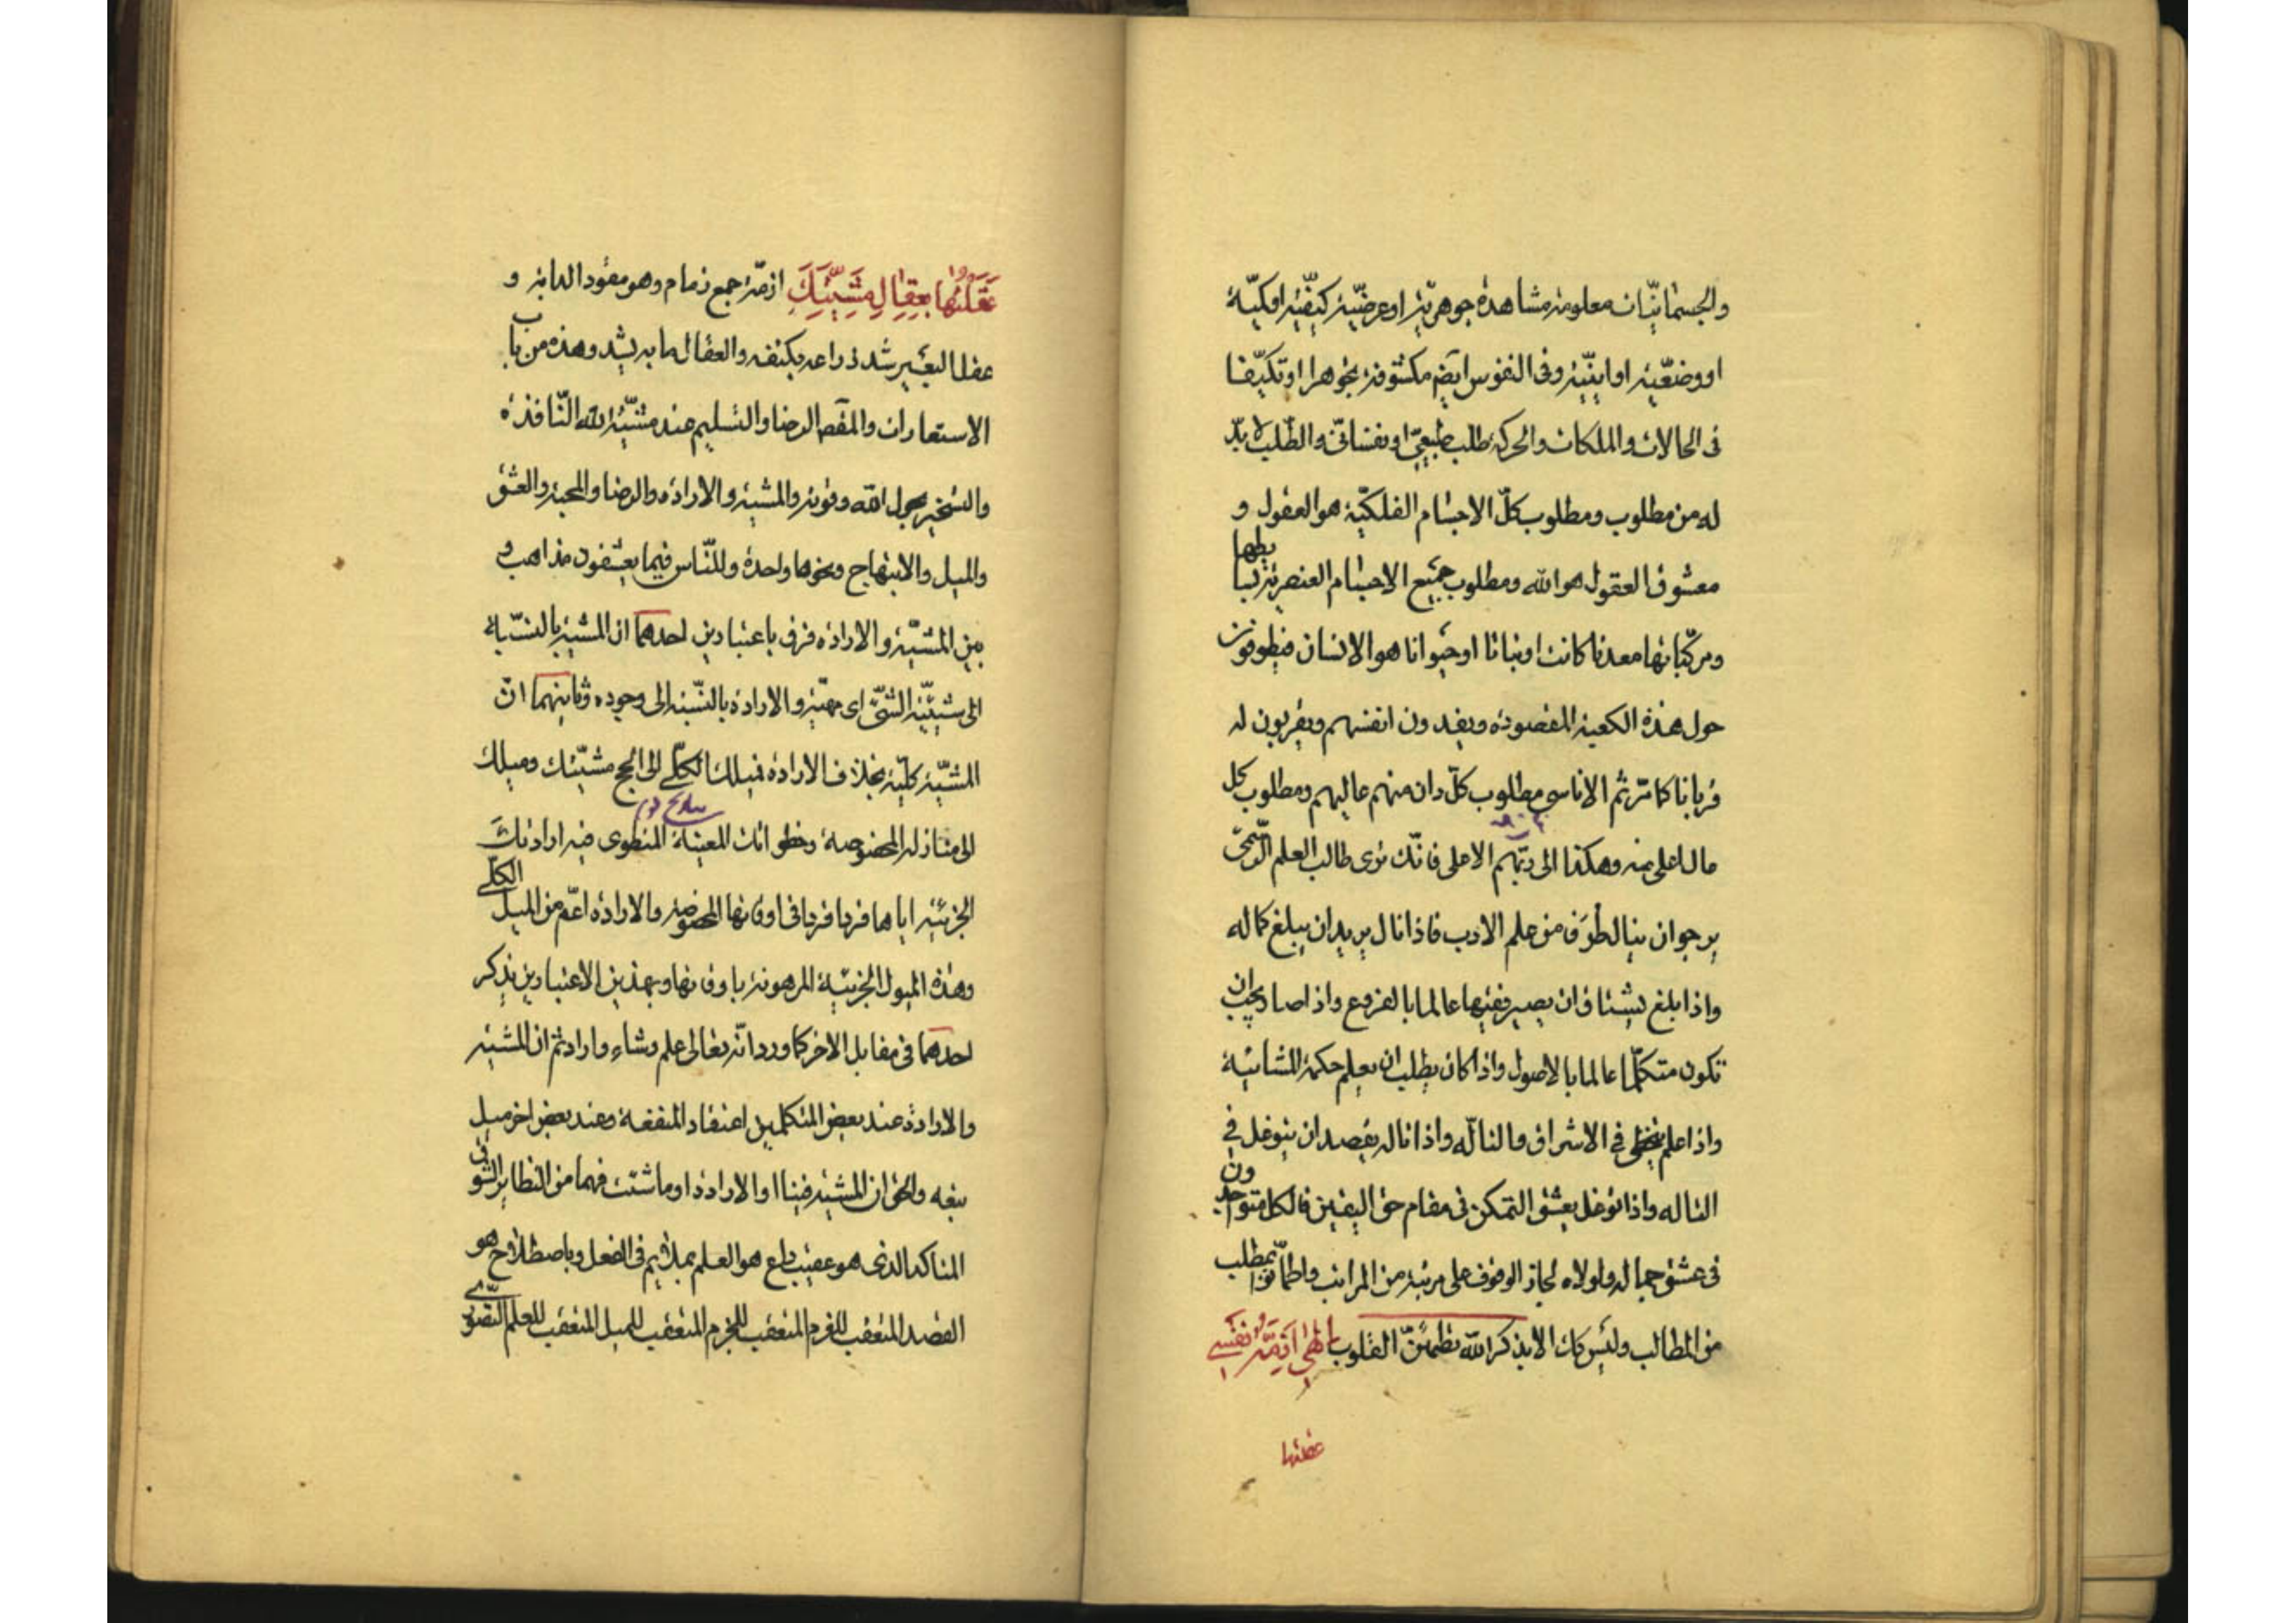 والجسمانيّات معلومة مشاهدة جوهريّة او عرضيّة كيفيّة او كميّة
او وضعيّة او اينيّة وفى النفوس ايضم مكشوفة تجوهرا او تكيّفا
فى الحالات والملكات والحركة طلب طبيعىّ او نفسانىّ والطّلب لا بدّ
له من مطلوب ومطلوب كلّ الاجسام الفلكيّة هو العقول و
معشوق العقول هو الله ومطلوب جميع الاجسام العنصرية بسايطها
ومركّباتها معدنا كانت او نباتا او حيوانا هو الانسان فيطوفون
حول هذه الكعبة المقصودة ويفدون انفسهم ويقربون له
قربانا كما مرّ ثم الاناسى مطلوب كلّ دان منهم عاليهم ومطلوب كل
عال اعلى منه وهكذا الى ربّهم الاعلى فانّك ترى طالب العلم الرّسمىّ
يرجو ان ينال طرَف من علم الادب فاذا نال يريد ان يبلغ كماله
واذا بلغ يشتاق ان يصير فقيها عالما بالفروع واذا صار يحب ان
تكون متكلّما عالما بالاصول واذا كان يطلب ان يعلم حكمة المشائية
واذا علم يخطى فى الاشراق والتالّه واذا ناله يقصد ان يتوغل فى
التاله واذا توغل يعشق التمكن فى مقام حق اليقين فالكل متوحدون
فى عشق جماله ولولاه لجاز الوقوف على مرتبة من المراتب واطمأنوا بمطلب
من المطالب وليس كك الا بذكر الله تطمئنّ القلوب الهى ازمّة نفسى
عقلتها
عَقَلْتُها بِعِقالِ مَشِيَّتِكَ ازمّة جمع زمام وهو مقود الدابة و
عقل البعير شد ذراعه بكتفه والعقال ما به يشد وهذه من باب
الاستعارات والمقصم الرضا والتسليم عند مشيّة الله النّافذة
والتسخير بحول الله وقوته والمشية والارادة والرضا والمحبة والعشق
والميل والابتهاج ونحوها واحدة وللنّاس فيما يعشقون مذاهب و
بين المشيّة والارادة فرق باعتبارين احدهما ان المشية بالنسّبة
الى شيئيّة الشىّء اى مهيّته والارادة بالنّسبة الى وجوده وثانيهما انّ
المشيّة كليّة بخلاف الارادة فميلك الكلّى الى الحج مشيّتك وميلك
الى منازله المخصوصة وخطواتك المعينة المنطوى فيه اراداتكَ
الجزئيّة اياها فردا فردا فى اوقاتها المخصوصة والارادة اعمّ من الميل الكلّى
وهذه الميول الجزئيّة المرهونة باوقاتها وبهذين الاعتبارين يذكر
احدهما فى مقابل الاخر كما ورد انّه تعالى علم وشاء واراد ثم ان المشية
والارادة عند بعض المتكلمين اعتقاد المنفعة وعند بعض اخر ميل
يتبعه والحق ان المشية فينا او الارادة او ما شئت فهما من النظاير الشوق
المتاكد الذى هو عقيب داع هو العلم بملايم فى الفعل وباصطلاح هو
القصد المتعقب للعزم المتعقب للجزم المتعقب للميل المتعقب للعلم التصورى